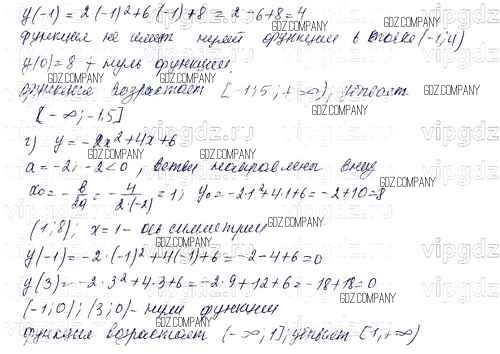 y(-1) = 2(-1)²+6·(-1)+8 = 2-6+8=4
функция не имеет нулей функции в точке (-1;4)
y(0)=8 - нуль функции.
функция возрастает [-1,5; +∞), убывает
[-∞; -1,5]
г) y = -2x²+4x+6
a=-2; -2<0, ветви направлены вниз
x₀ = -b/2a = -4/2·(-2) = 1; y₀ = -2·1²+4·1+6 = -2+10=8
(1;8); x=1 - ось симметрии
y(-1) = -2·(-1)²+4(-1)+6 = -2-4+6=0
y(3) = -2·3²+4·3+6 = -2·9+12+6 = -18+18=0
(-1;0); (3;0) - нули функции
функция возрастает (-∞,1]; убывает [1,+∞)
GDZ.COMPANY
vipgdz.ru